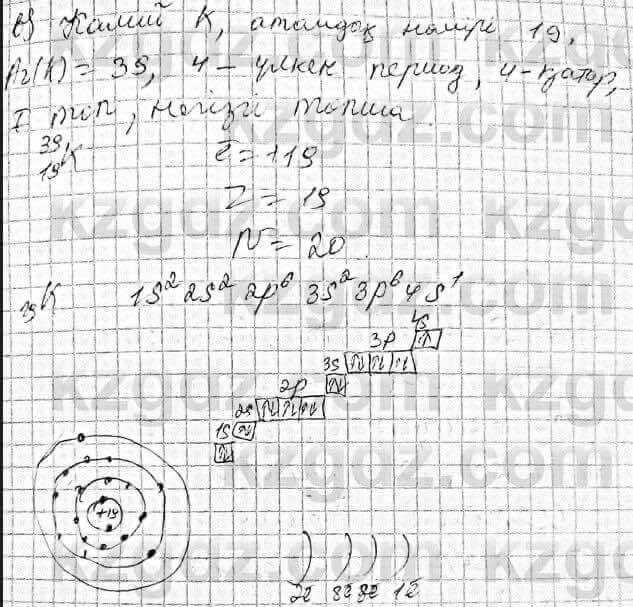 е) Калий К, атомдық нөмірі 19,
Ar(K) = 39, 4 – үлкен период, 4-қатар,
I топ, негізгі топша
39
19 K
ē = +19
Z = 19
N = 20
19K 1s² 2s² 2p⁶ 3s² 3p⁶ 4s¹
4s
3p
3s
2p
2s
1s
+19
2ē 8ē 8ē 1ē
kzgdz.com